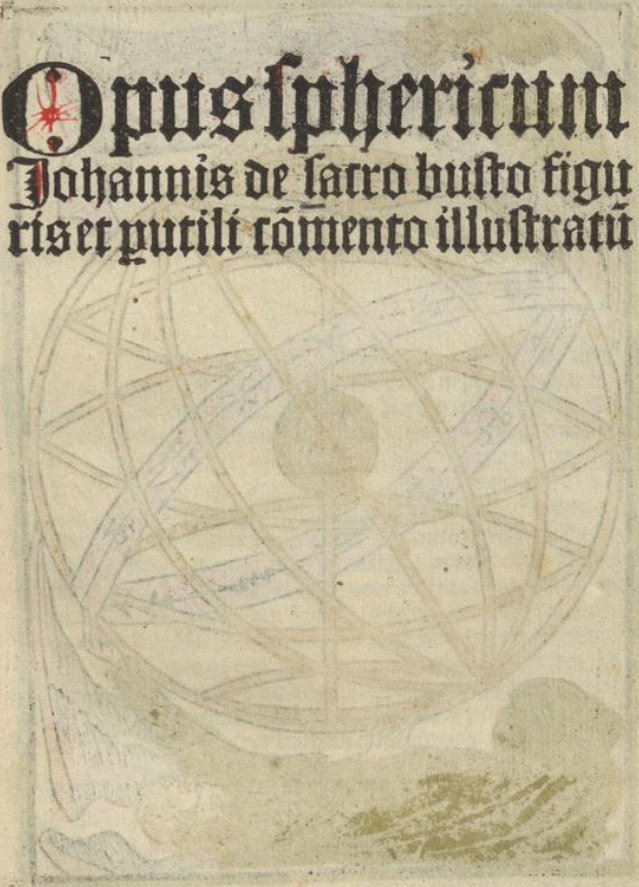 Opus sphericum
Johannis de sacro busto figu
ris et ꝑutili cōmento illustratū